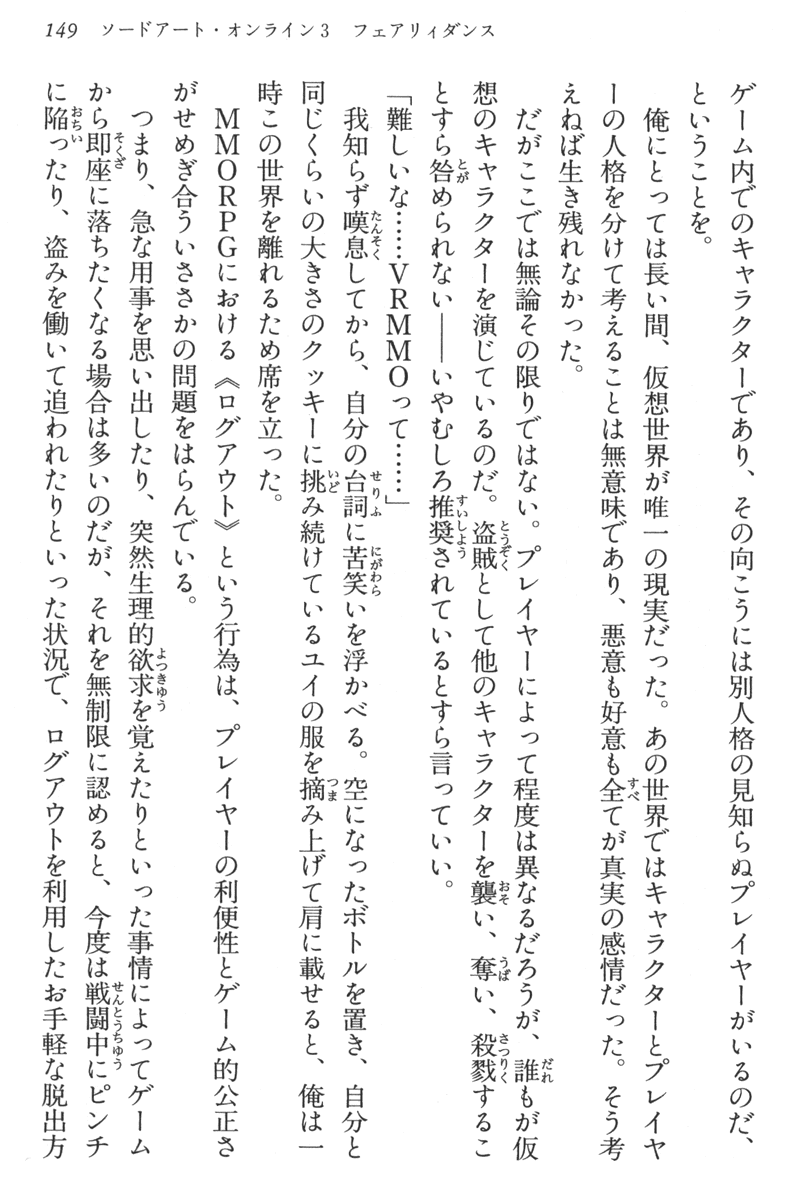 149　ソードアート・オンライン3　フェアリィダンス
ゲーム内でのキャラクターであり、その向こうには別人格の見知らぬプレイヤーがいるのだ、
ということを。
　俺にとっては長い間、仮想世界が唯一の現実だった。あの世界ではキャラクターとプレイヤ
ーの人格を分けて考えることは無意味であり、悪意も好意も全てが真実の感情だった。そう考
えねば生き残れなかった。
　だがここでは無論その限りではない。プレイヤーによって程度は異なるだろうが、誰もが仮
想のキャラクターを演じているのだ。盗賊として他のキャラクターを襲い、奪い、殺戮するこ
とすら咎められない――いやむしろ推奨されているとすら言っていい。
「難しいな……VRMMOって……」
　我知らず嘆息してから、自分の台詞に苦笑いを浮かべる。空になったボトルを置き、自分と
同じくらいの大きさのクッキーに挑み続けているユイの服を摘み上げて肩に載せると、俺は一
時この世界を離れるため席を立った。
　MMORPGにおける《ログアウト》という行為は、プレイヤーの利便性とゲーム的公正さ
がせめぎ合ういささかの問題をはらんでいる。
　つまり、急な用事を思い出したり、突然生理的欲求を覚えたりといった事情によってゲーム
から即座に落ちたくなる場合は多いのだが、それを無制限に認めると、今度は戦闘中にピンチ
に陥ったり、盗みを働いて追われたりといった状況で、ログアウトを利用したお手軽な脱出方